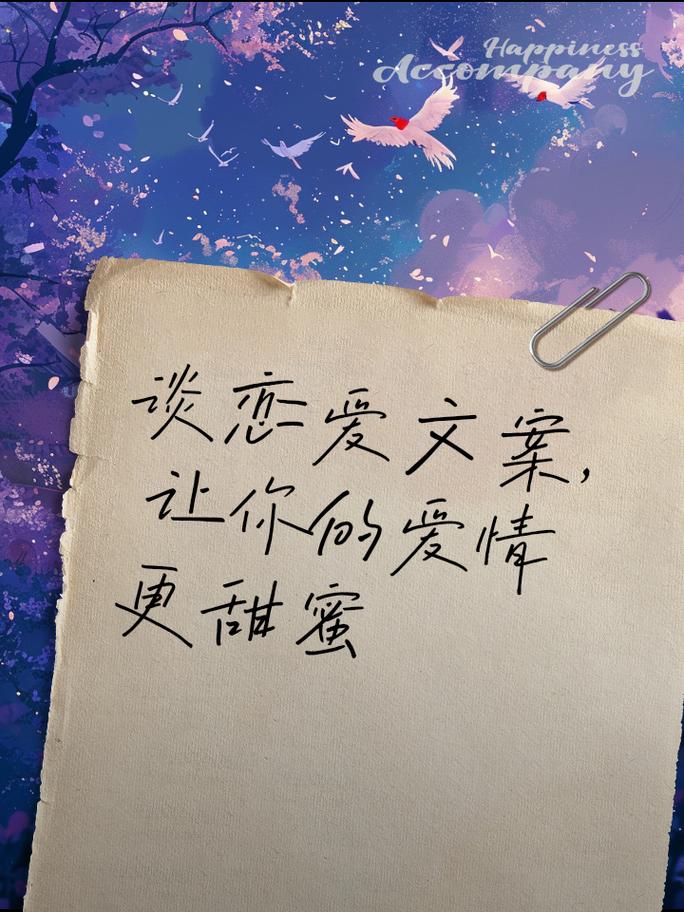 Happiness
Accompany
谈恋爱文案，
让你的爱情
更甜蜜